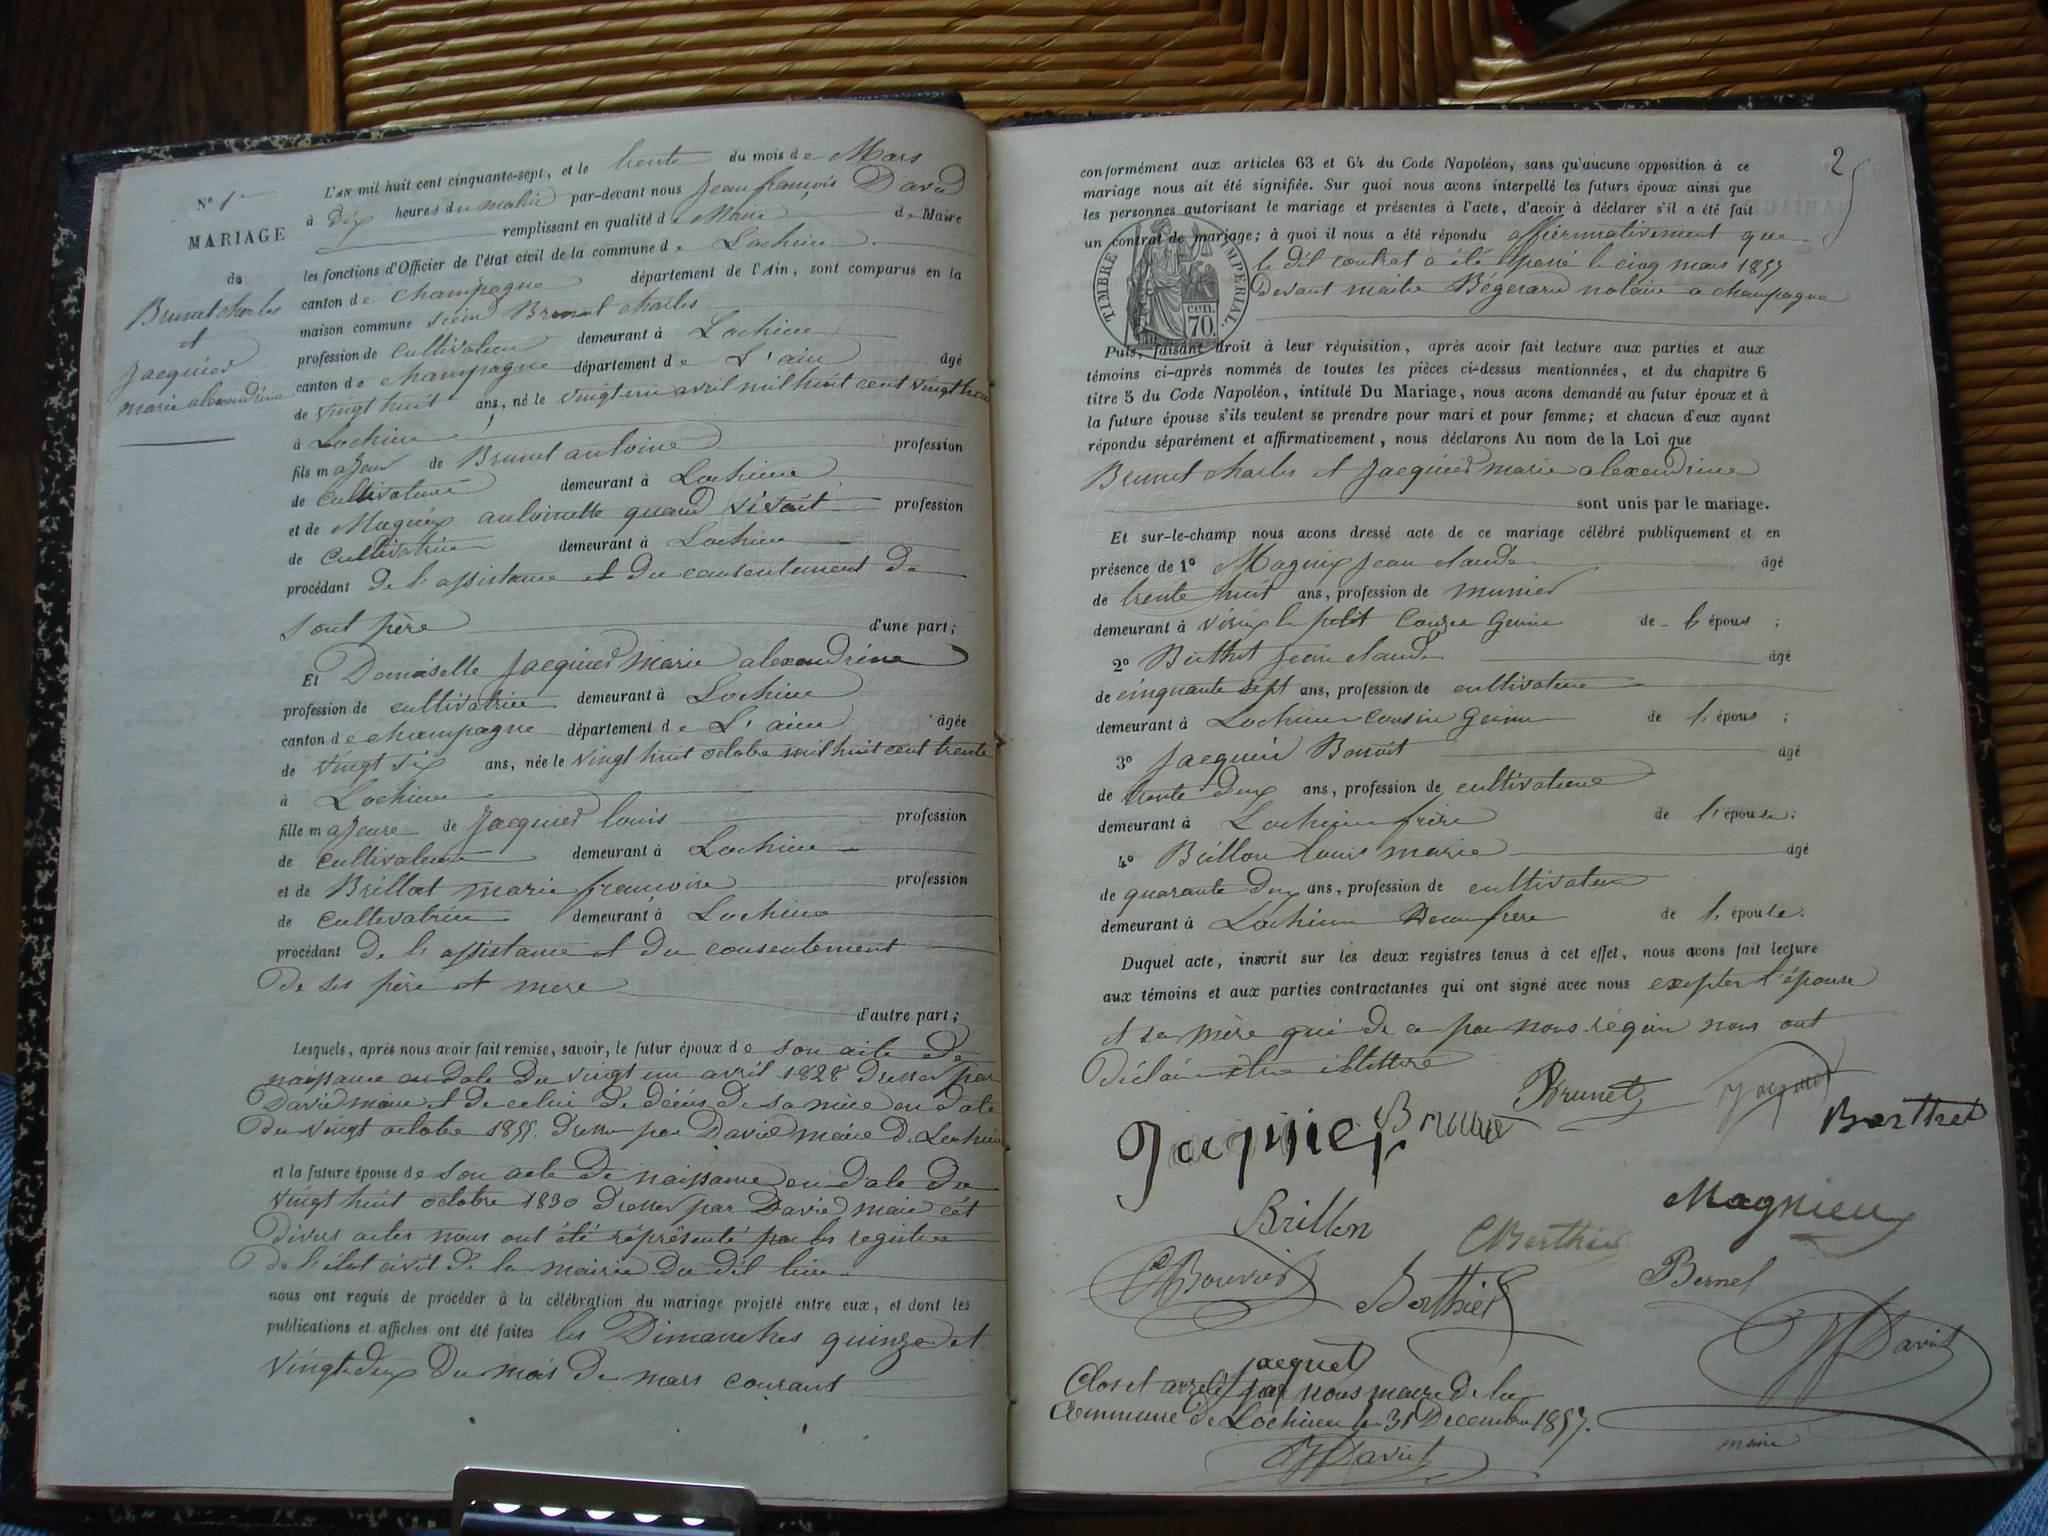 N° 1er
MARIAGE
de
Brunet charles
et
Jacquier
marie alexandrine
L'AN mil huit cent cinquante-sept, et le trente du mois de Mars
à Dix heures du matin par-devant nous Jean françois David
remplissant en qualité de Maire de Maire
les fonctions d'Officier de l'état civil de la commune de Lochieu
canton de champagne département de l'Ain, sont comparus en la
maison commune sieur Brunet charles
profession de cultivateur demeurant à Lochieu
canton de champagne département de L'ain âgé
de vingt huit ans, né le vingt un avril mil huit cent vingt huit
à Lochieu
fils majeur de Brunet antoine profession
de cultivateur demeurant à Lochieu
et de Magnix antoinette quand vivait profession
de cultivatrice demeurant à Lochieu
procédant de l'assistance et du consentement de
sont père d'une part;
Et Demoiselle Jacquier marie alexandrine
profession de cultivatrice demeurant à Lochieu
canton de champagne département de L'ain âgée
de vingt six ans, née le vingt huit octobre mil huit cent trente
à Lochieu
fille majeure de Jacquier louis profession
de cultivateur demeurant à Lochieu
et de Brillat marie françoise profession
de cultivatrice demeurant à Lochieu
procédant de l'assistance et du consentement
De ses père et mere
d'autre part;
Lesquels, après nous avoir fait remise, savoir, le futur époux de son acte de
naissance en date du vingt un avril 1828 dresser par
David maire et de celui de décès de sa mère en date
du vingt octobre 1855 dresser par David maire de Lochieu
et la future épouse de son acte de naissance en date du
vingt huit octobre 1830 dresser par David maire cét
divers actes nous ont été réprésenté par les registres
de l'état civil de la mairie du dit lieu
nous ont requis de procéder à la célébration du mariage projeté entre eux, et dont les
publications et affiches ont été faites les Dimanches quinze et
vingt-deux du mois de mars courant
2
conformément aux articles 63 et 64 du Code Napoléon, sans qu'aucune opposition à ce
mariage nous ait été signifiée. Sur quoi nous avons interpellé les futurs époux ainsi que
les personnes autorisant le mariage et présentes à l'acte, d'avoir à déclarer s'il a été fait
un contrat de mariage; à quoi il nous a été répondu affiermativement que
le dit contrat a été passé le cinq mars 1857
Devant maitre Bégerard notaire a champagne
TIMBRE IMPERIAL
70 cen.
Puis, faisant droit à leur réquisition, après avoir fait lecture aux parties et aux
témoins ci-après nommés de toutes les pièces ci-dessus mentionnées, et du chapitre 6
titre 5 du Code Napoléon, intitulé Du Mariage, nous avons demandé au futur époux et à
la future épouse s'ils veulent se prendre pour mari et pour femme; et chacun d'eux ayant
répondu séparément et affirmativement, nous déclarons Au nom de la Loi que
Brunet charles et Jacquier marie alexandrine
sont unis par le mariage.
Et sur-le-champ nous avons dressé acte de ce mariage célébré publiquement et en
présence de 1° Magnix Jean claude âgé
de trente huit ans, profession de munier
demeurant à virieu le petit Cousin Germin de l'époux;
2° Berthet Jean claude âgé
de cinquante sept ans, profession de cultivateur
demeurant à Lochieu cousin Germin de l'époux;
3° Jacquier Benoit âgé
de trente deux ans, profession de cultivateur
demeurant à Lochieu frère de l'épouse;
4° Brillon Louis marie âgé
de quarante deux ans, profession de cultivateur
demeurant à Lochieu Beau frère de l'épouse.
Duquel acte, inscrit sur les deux registres tenus à cet effet, nous avons fait lecture
aux témoins et aux parties contractantes qui ont signé avec nous exepter l'épouse
et sa mère qui de ce par nous réquis nous ont
Déclaré être illettére
Brunet Jacquier
Jacquier Brunet Berthet
Brillon Magnieu
C Berthier
C Bouvier Berthier Bernel
jacquet
JF David
Clos et arrêté par nous maire de la
Commune de Lochieu le 31 Decembre 1857.
JF David
maire